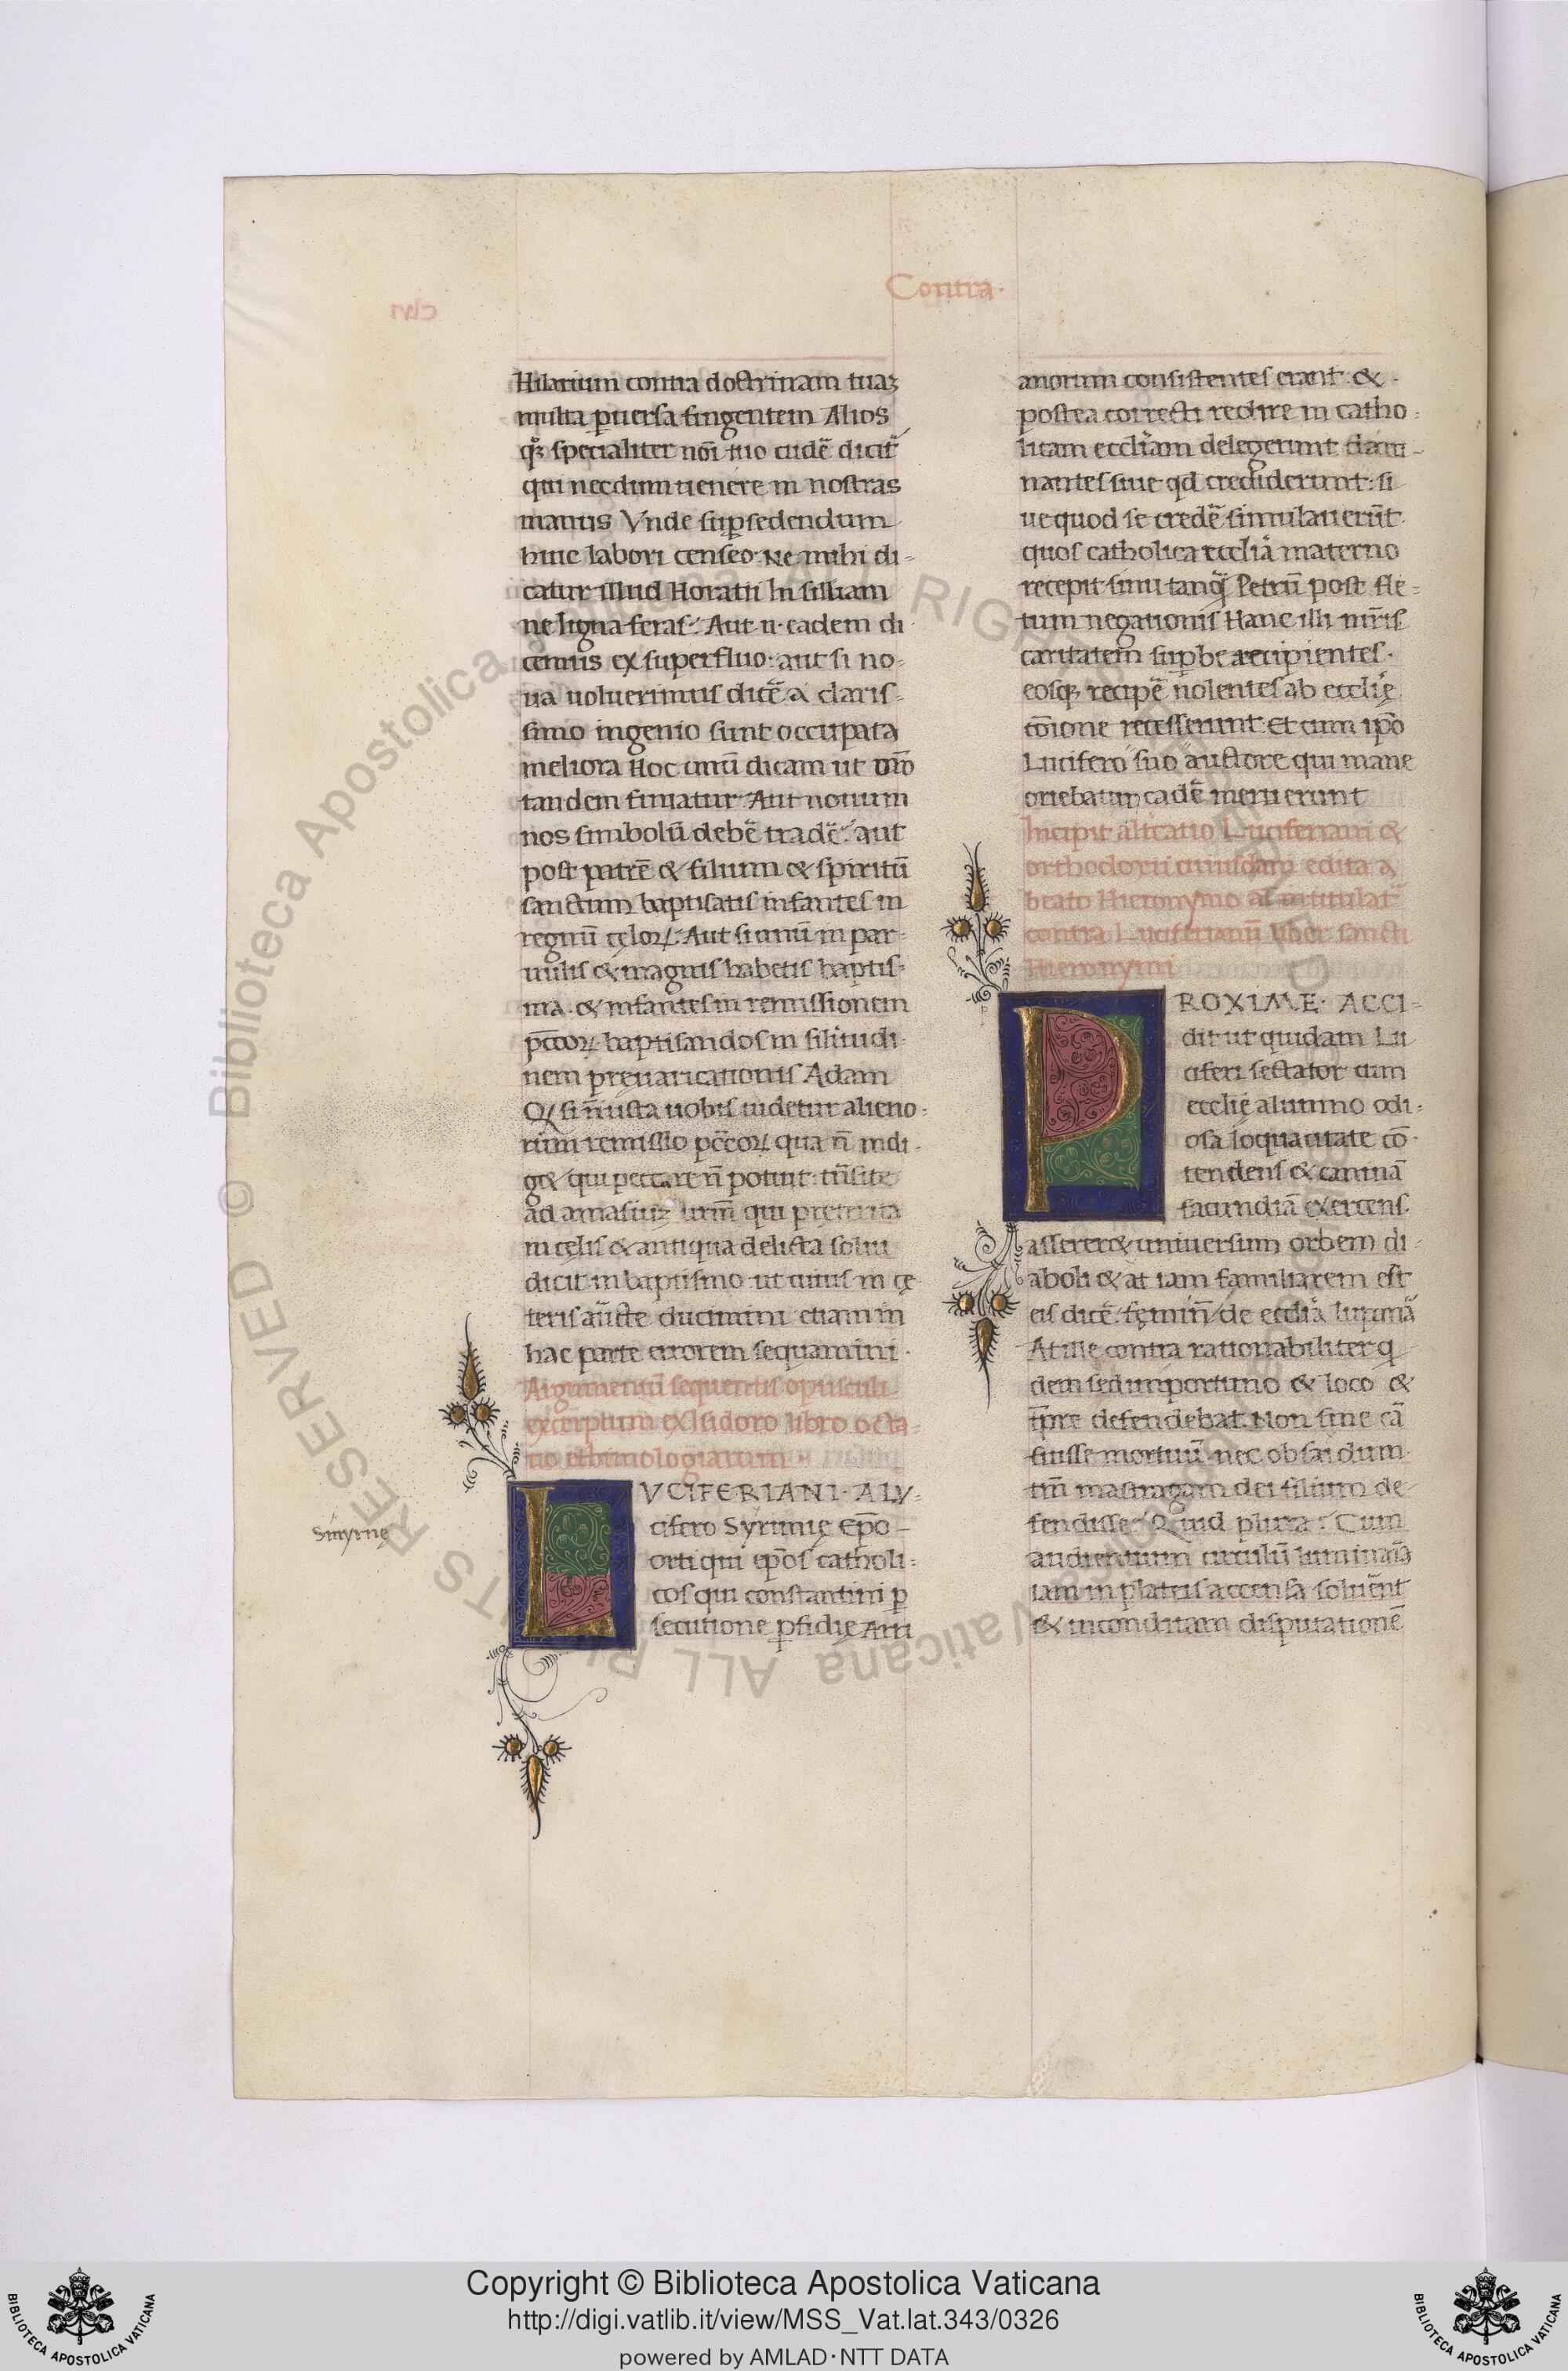 Contra·
Hilarium contra doctrinam tuaꝫ
multa ꝑuersa fingentem Alios
qꝫ specialiter noi᷑ tuo cudē dicit᷑
qui necdum uenere in nostras
manus Vnde suꝑsedendum
huic labori censeo: Ne mihi di-
catur illud Horatii In siluam
ne ligna feras: Aut n. eadem di
cemus ex superfluo: aut si no-
ua uoluerimus dicē: a claris-
simo ingenio sunt occupata
meliora Hoc unū dicam ut oīo
tandem finiatur. Aut nouum
nos simbolū debē tradē: aut
post patrē & filium & spiritū
sanctum baptisatis infantes in
regnū cęloꝝ: Aut si unū in par-
uulis & magnis habetis baptis-
ma. & infantes in remissionem
pc̄cōꝝ baptisandos in silitudi-
nem preuaricationis Adam
Qꝫ si n̄ iusta uobis uidetur alieno-
rum remissio pc̄cōꝝ qua n̄ indi-
g& qui peccare n̄ potuit: tn̄site
ad amasiūꝫ urm̄ qui pręterita
in cęlis & antiqua delicta solui
dicit in baptismo ut cuius in cę
teris aūcte ducimini etiam in
hac parte errorem sequamini.
Argumentū sequentis opusculi
excerptum ex Isidoro libro octa-
uo ethimologiarum.
LVCIFERIANI· A LV-
cifero Syrmię Ep̄o-
orti qui ep̄os catholi-
cos qui constantini ꝑ
secutione ꝑfidię Arri
Smyrnę
anorum consistentes erant: &
postea correcti redire in catho-
licam eccliam delegerunt dam-
nantes siue qd crediderunt: si
ue quod se credē simulauerūt.
quos catholica ecclīa materno
recepit sinu tanq̄ Petrū post fle-
tum negationis Hanc illi mr̄is
caritatem suꝑbe recipientes.
eosqꝫ recipē nolentes ab ecclię
cōione recesserunt. Et cum ip̄o
Lucifero suo auctore qui mane
oriebatur, cadē meruerunt
Incipit alt̓catio Luciferiani &
orthodoxi cuiusdam edita a
beato Hieronymo al̓ intitulat᷑
contra Luciferianū liber sancti
Hieronymi
PROXIME· ACCI-
dit ut quidam Lu
ciferi sectator cum
ecclię alumno odi-
osa loquacitate cō-
tendens & caninā
facundiā exercens.
asserer& uniuersum orbem di-
aboli & at iam familiarem est
eis dicē: fęmin̄ de ecclīa lupanā
At ille contra rationabiliter q
dem sed inportuno & loco &
tp̄re defendebat. Non sine cā
fuisse mortuū nec obsardum
tm̄ mastragam dei filium de-
fendisse. Quid plura: Cum
audientium circulū luminaria
iam in plateis accensa soluēnt
& inconditam disputationē
Copyright © Biblioteca Apostolica Vaticana
http://digi.vatlib.it/view/MSS_Vat.lat.343/0326
powered by AMLAD·NTT DATA